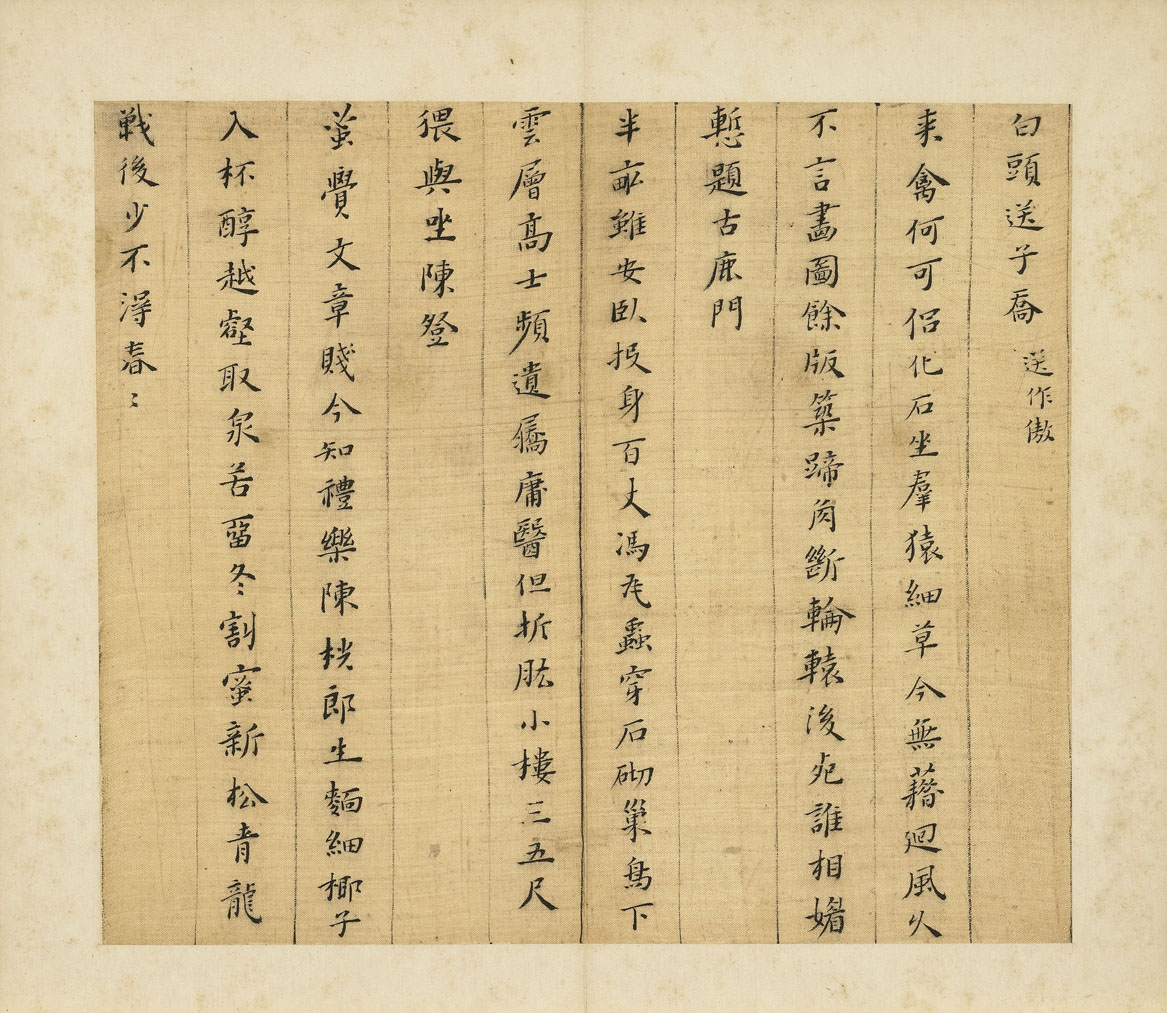 白頭送子喬 送作傲
来禽何可侣化石坐羣猿細草今無藉迴風久
不言畫圖餘版築蹄肉斷輪轅後死誰相媚
慙題古鹿門
半畝雖安臥投身百丈馮瓦蟲穿石砌巢鳥下
雲層高士頻遺屩庸醫但折肱小樓三五尺
猥與坐陳登
蚤覺文章賤今知禮樂陳桄郎生麵細椰子
入杯醇越壑取泉苦畱冬割蜜新松青龍
戰後少不得春〻